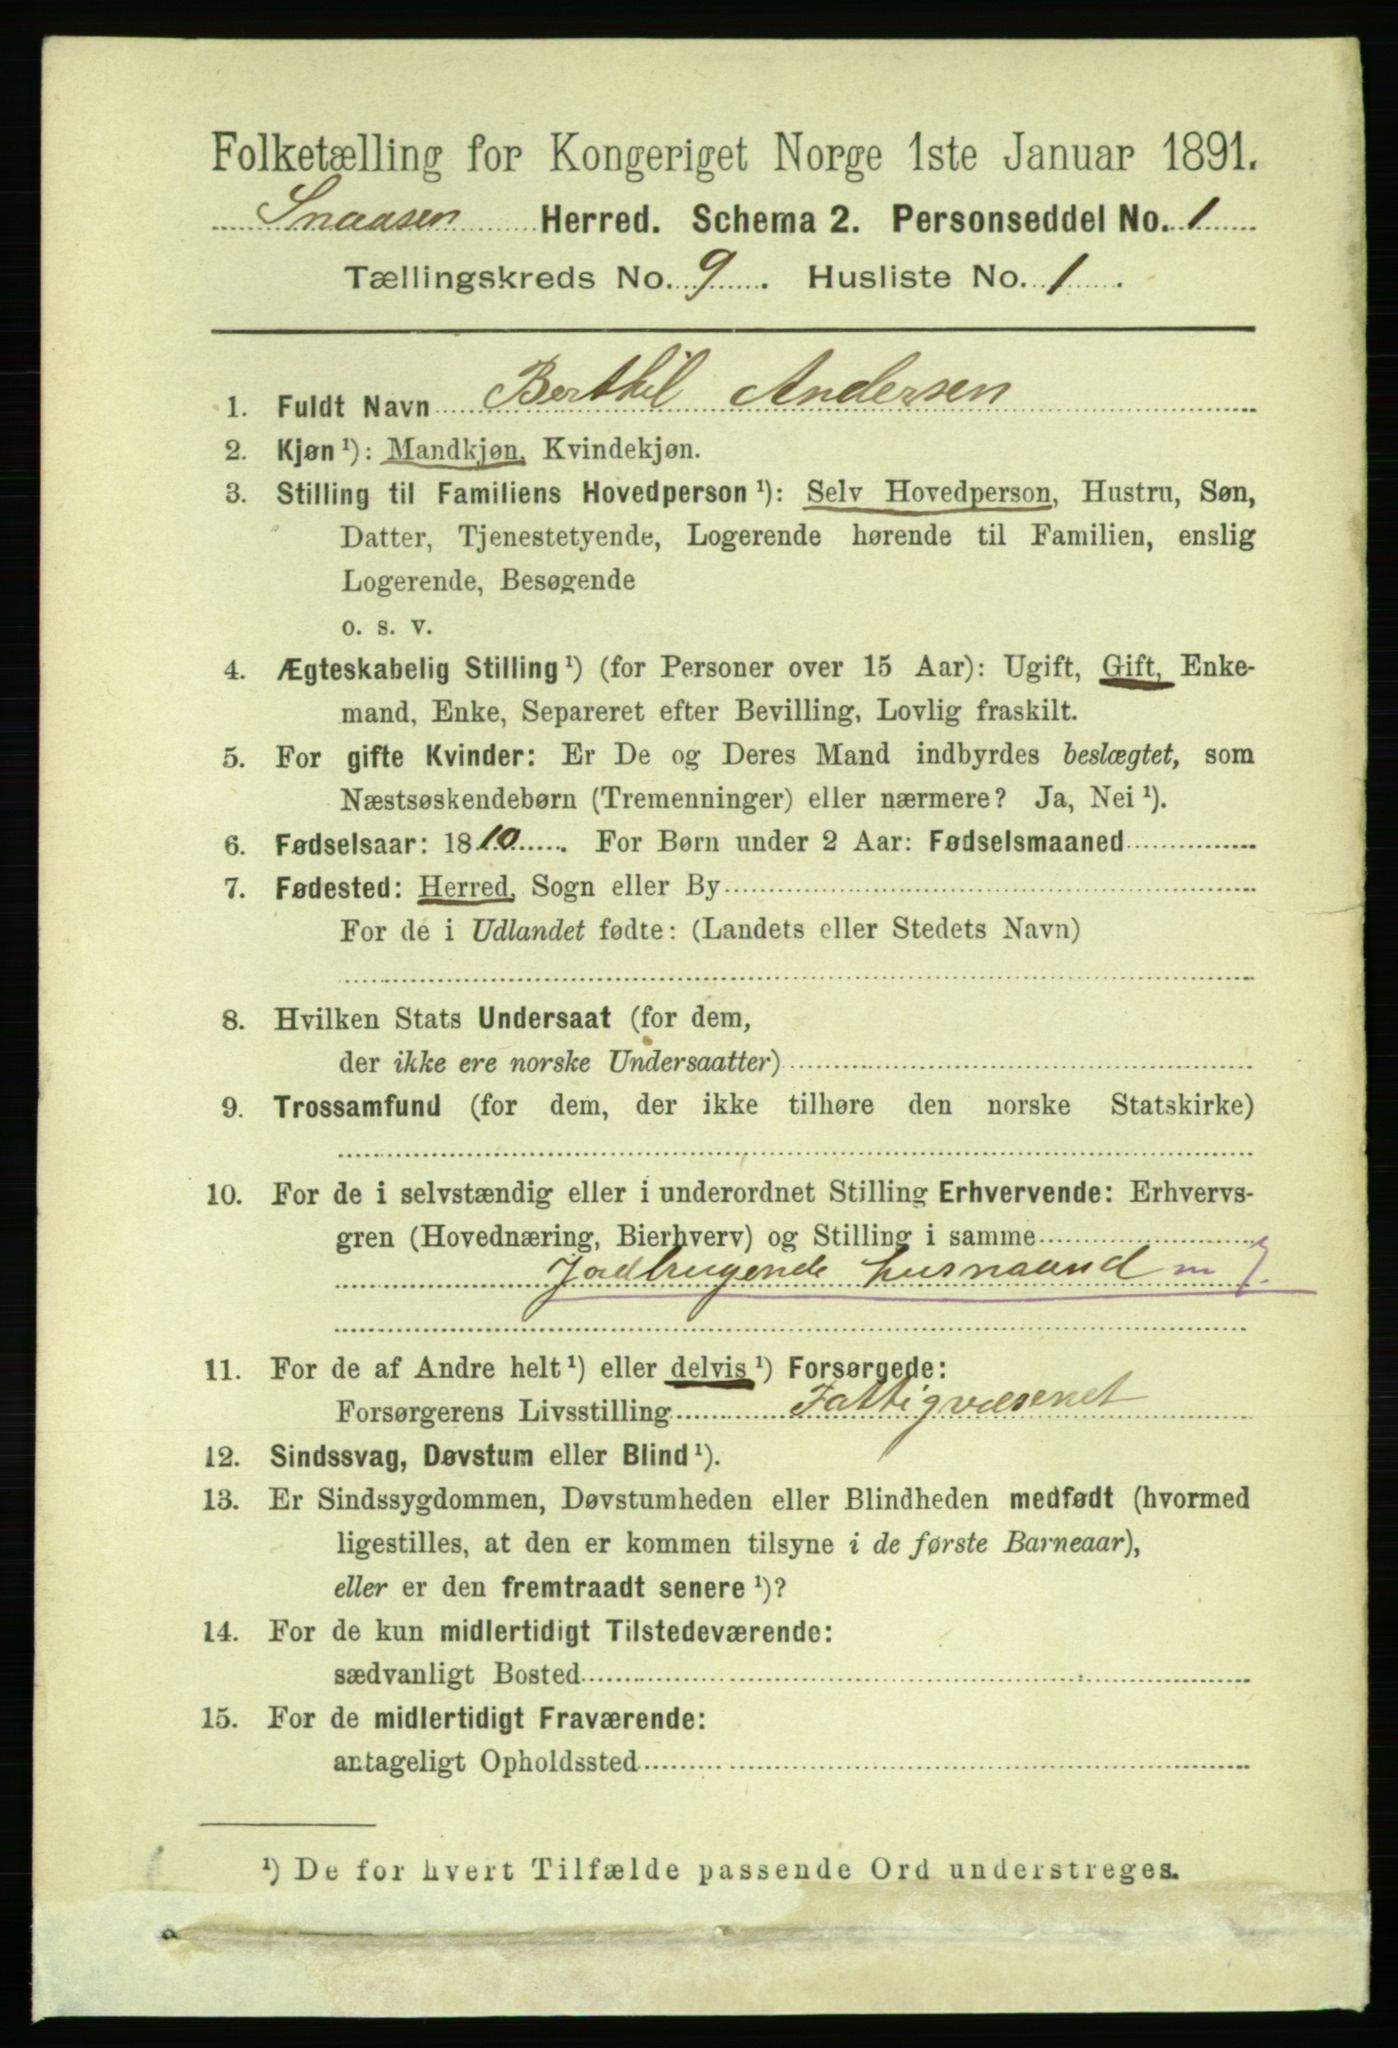 Folketælling for Kongeriget Norge 1ste Januar 1891.
Snaasen Herred. Schema 2. Personseddel No. 1
Tællingskreds No. 9. Husliste No. 1.
1. Fuldt Navn Berthil Andersen
2. Kjøn ¹): Mandkjøn, Kvindekjøn.
3. Stilling til Familiens Hovedperson ¹): Selv Hovedperson, Hustru, Søn,
Datter, Tjenestetyende, Logerende hørende til Familien, enslig
Logerende, Besøgende
o. s. v.
4. Ægteskabelig Stilling ¹) (for Personer over 15 Aar): Ugift, Gift, Enke-
mand, Enke, Separeret efter Bevilling, Lovlig fraskilt.
5. For gifte Kvinder: Er De og Deres Mand indbyrdes beslægtet, som
Næstsøskendebørn (Tremenninger) eller nærmere? Ja, Nei ¹).
6. Fødselsaar: 1810. For Børn under 2 Aar: Fødselsmaaned
7. Fødested: Herred, Sogn eller By
For de i Udlandet fødte: (Landets eller Stedets Navn)
8. Hvilken Stats Undersaat (for dem,
der ikke ere norske Undersaatter)
9. Trossamfund (for dem, der ikke tilhøre den norske Statskirke)
10. For de i selvstændig eller i underordnet Stilling Erhvervende: Erhvervs-
gren (Hovednæring, Bierhverv) og Stilling i samme
Jordbrugende husmaand m J.
11. For de af Andre helt ¹) eller delvis ¹) Forsørgede:
Forsørgerens Livsstilling Fattigvæsenet
12. Sindssvag, Døvstum eller Blind ¹).
13. Er Sindssygdommen, Døvstumheden eller Blindheden medfødt (hvormed
ligestilles, at den er kommen tilsyne i de første Barneaar),
eller er den fremtraadt senere ¹)?
14. For de kun midlertidigt Tilstedeværende:
sædvanligt Bosted
15. For de midlertidigt Fraværende:
antageligt Opholdssted
¹) De for hvert Tilfælde passende Ord understreges.